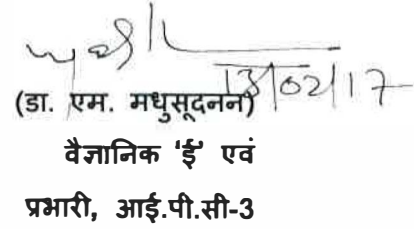 13/02/17
(डा. एम. मधुसूदनन)
वैज्ञानिक ‘ई’ एवं
प्रभारी, आई.पी.सी-3